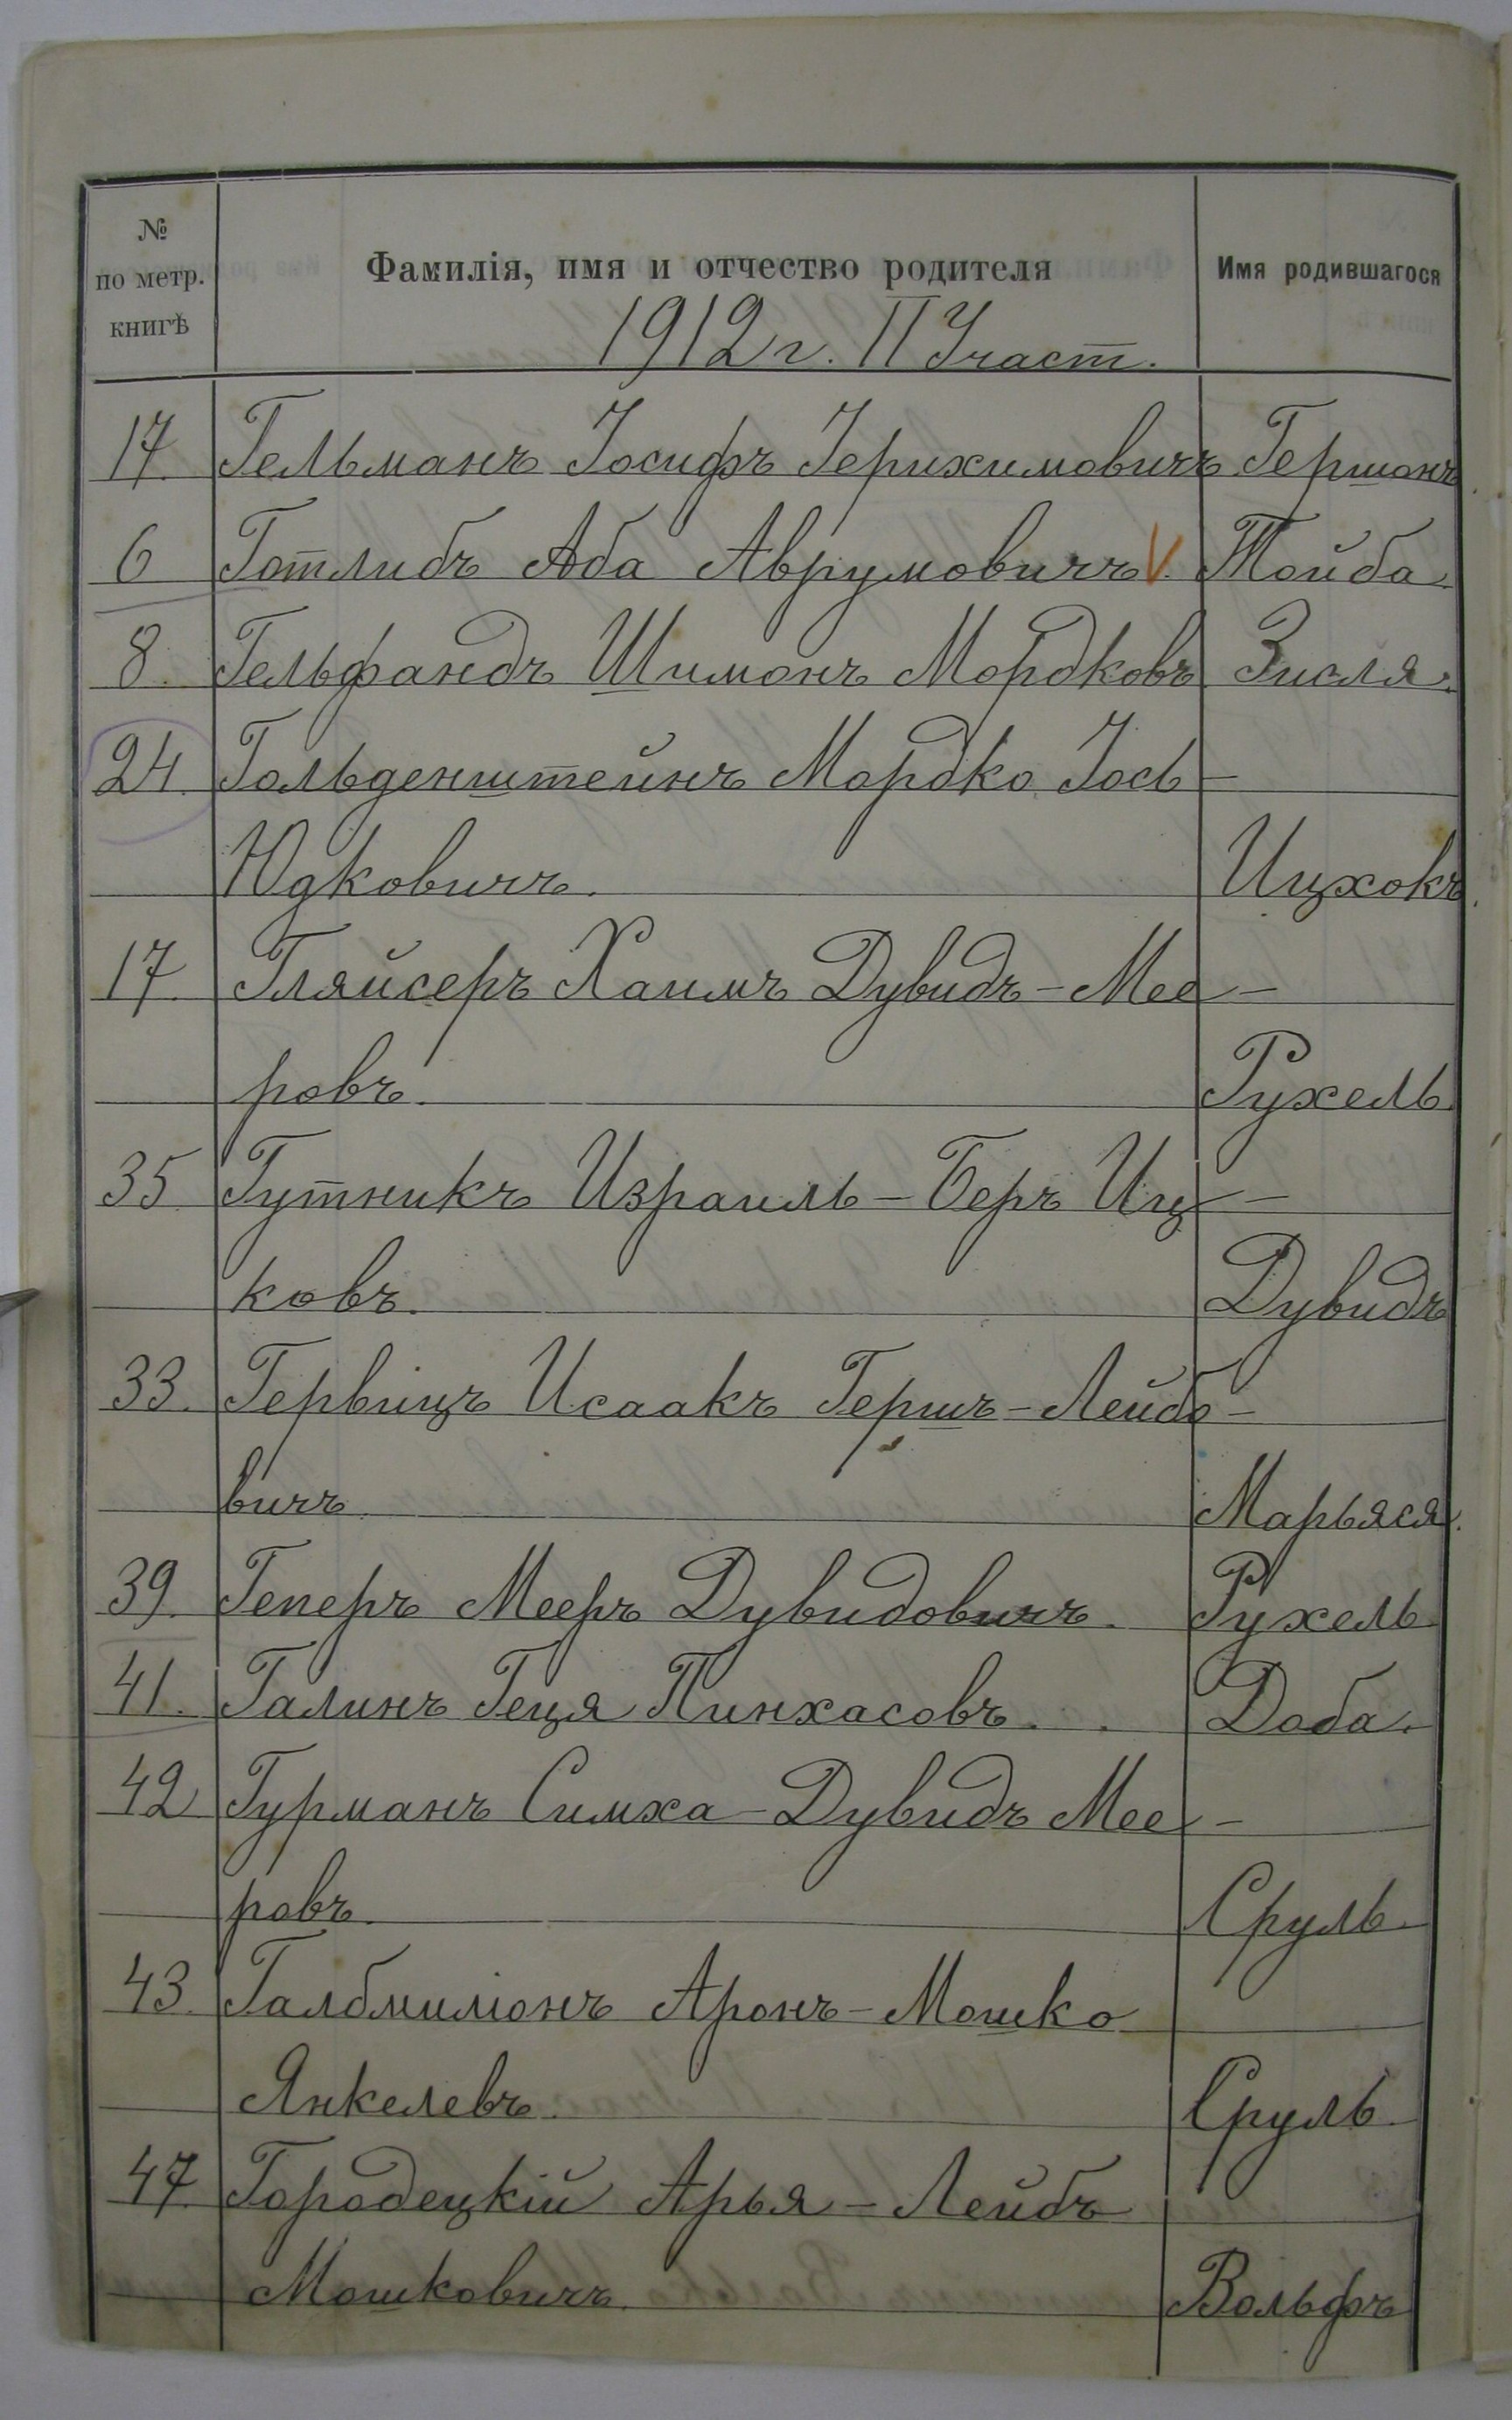 № по метр. книгѣ Фамилія, имя и отчество родителя Имя родившагося
1912 г. II Участ.
17. Гельманъ Іосифъ Іерихимовичъ Гершонъ
6 Готлибъ Аба Аврумовичъ V. Тойба.
8. Гельфандъ Шимонъ Мордковъ Зисля.
24. Гольденштейнъ Мордко Іось-
Юдковичъ. Ицхокъ.
17. Гляйсеръ Хаимъ Дувидъ-Мее-
ровъ. Рухель.
35. Гутникъ Израиль-Беръ Иц-
ковъ. Дувидъ
33. Гервицъ Исаакъ Гершъ-Лейбо-
вичъ. Марьяся.
39. Геперъ Мееръ Дувидовичъ. Рухель.
41. Галинъ Геця Пинхасовъ. Доба.
42 Гурманъ Симха-Дувидъ Мее-
ровъ. Сруль.
43. Галбмиліонъ Аронъ-Мошко
Янкелевъ. Сруль.
47. Городецкій Арья-Лейбъ
Мошковичъ. Вольфъ